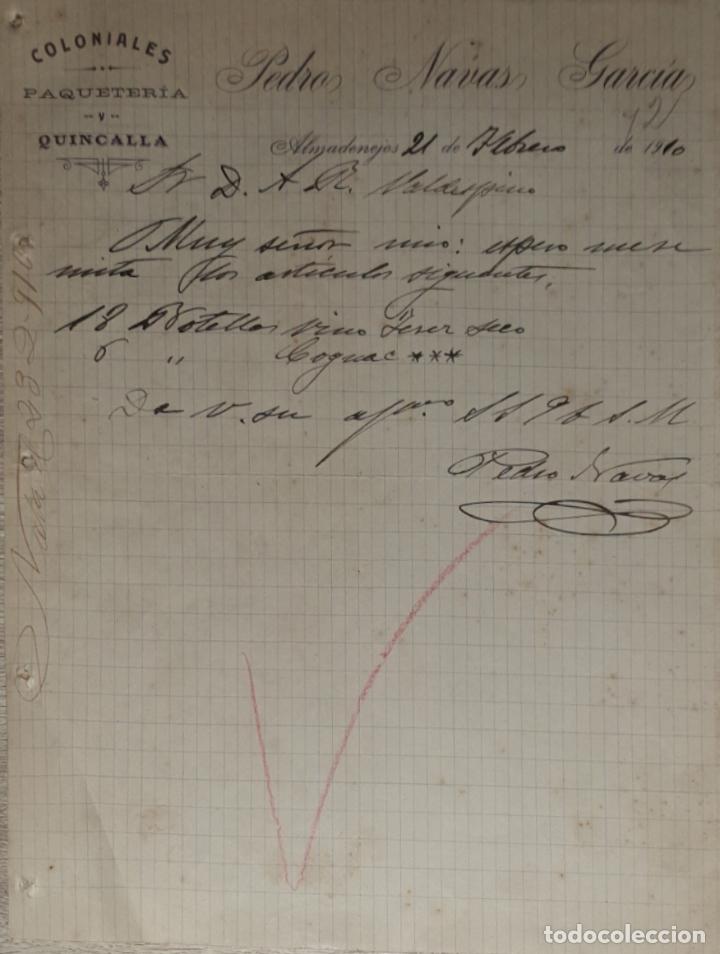 COLONIALES
PAQUETERÍA
Y
QUINCALLA
Pedro Navas García
Almadenejos 21 de Febrero de 1910
Sr D. A R. Valdespino
Muy señor mio: espero me re
mita los artículos siguientes.
18 Botellas vino Jerez seco
6 " Cognac ***
De V. su afmo S S Q B S. M
Pedro Navas
todocoleccion